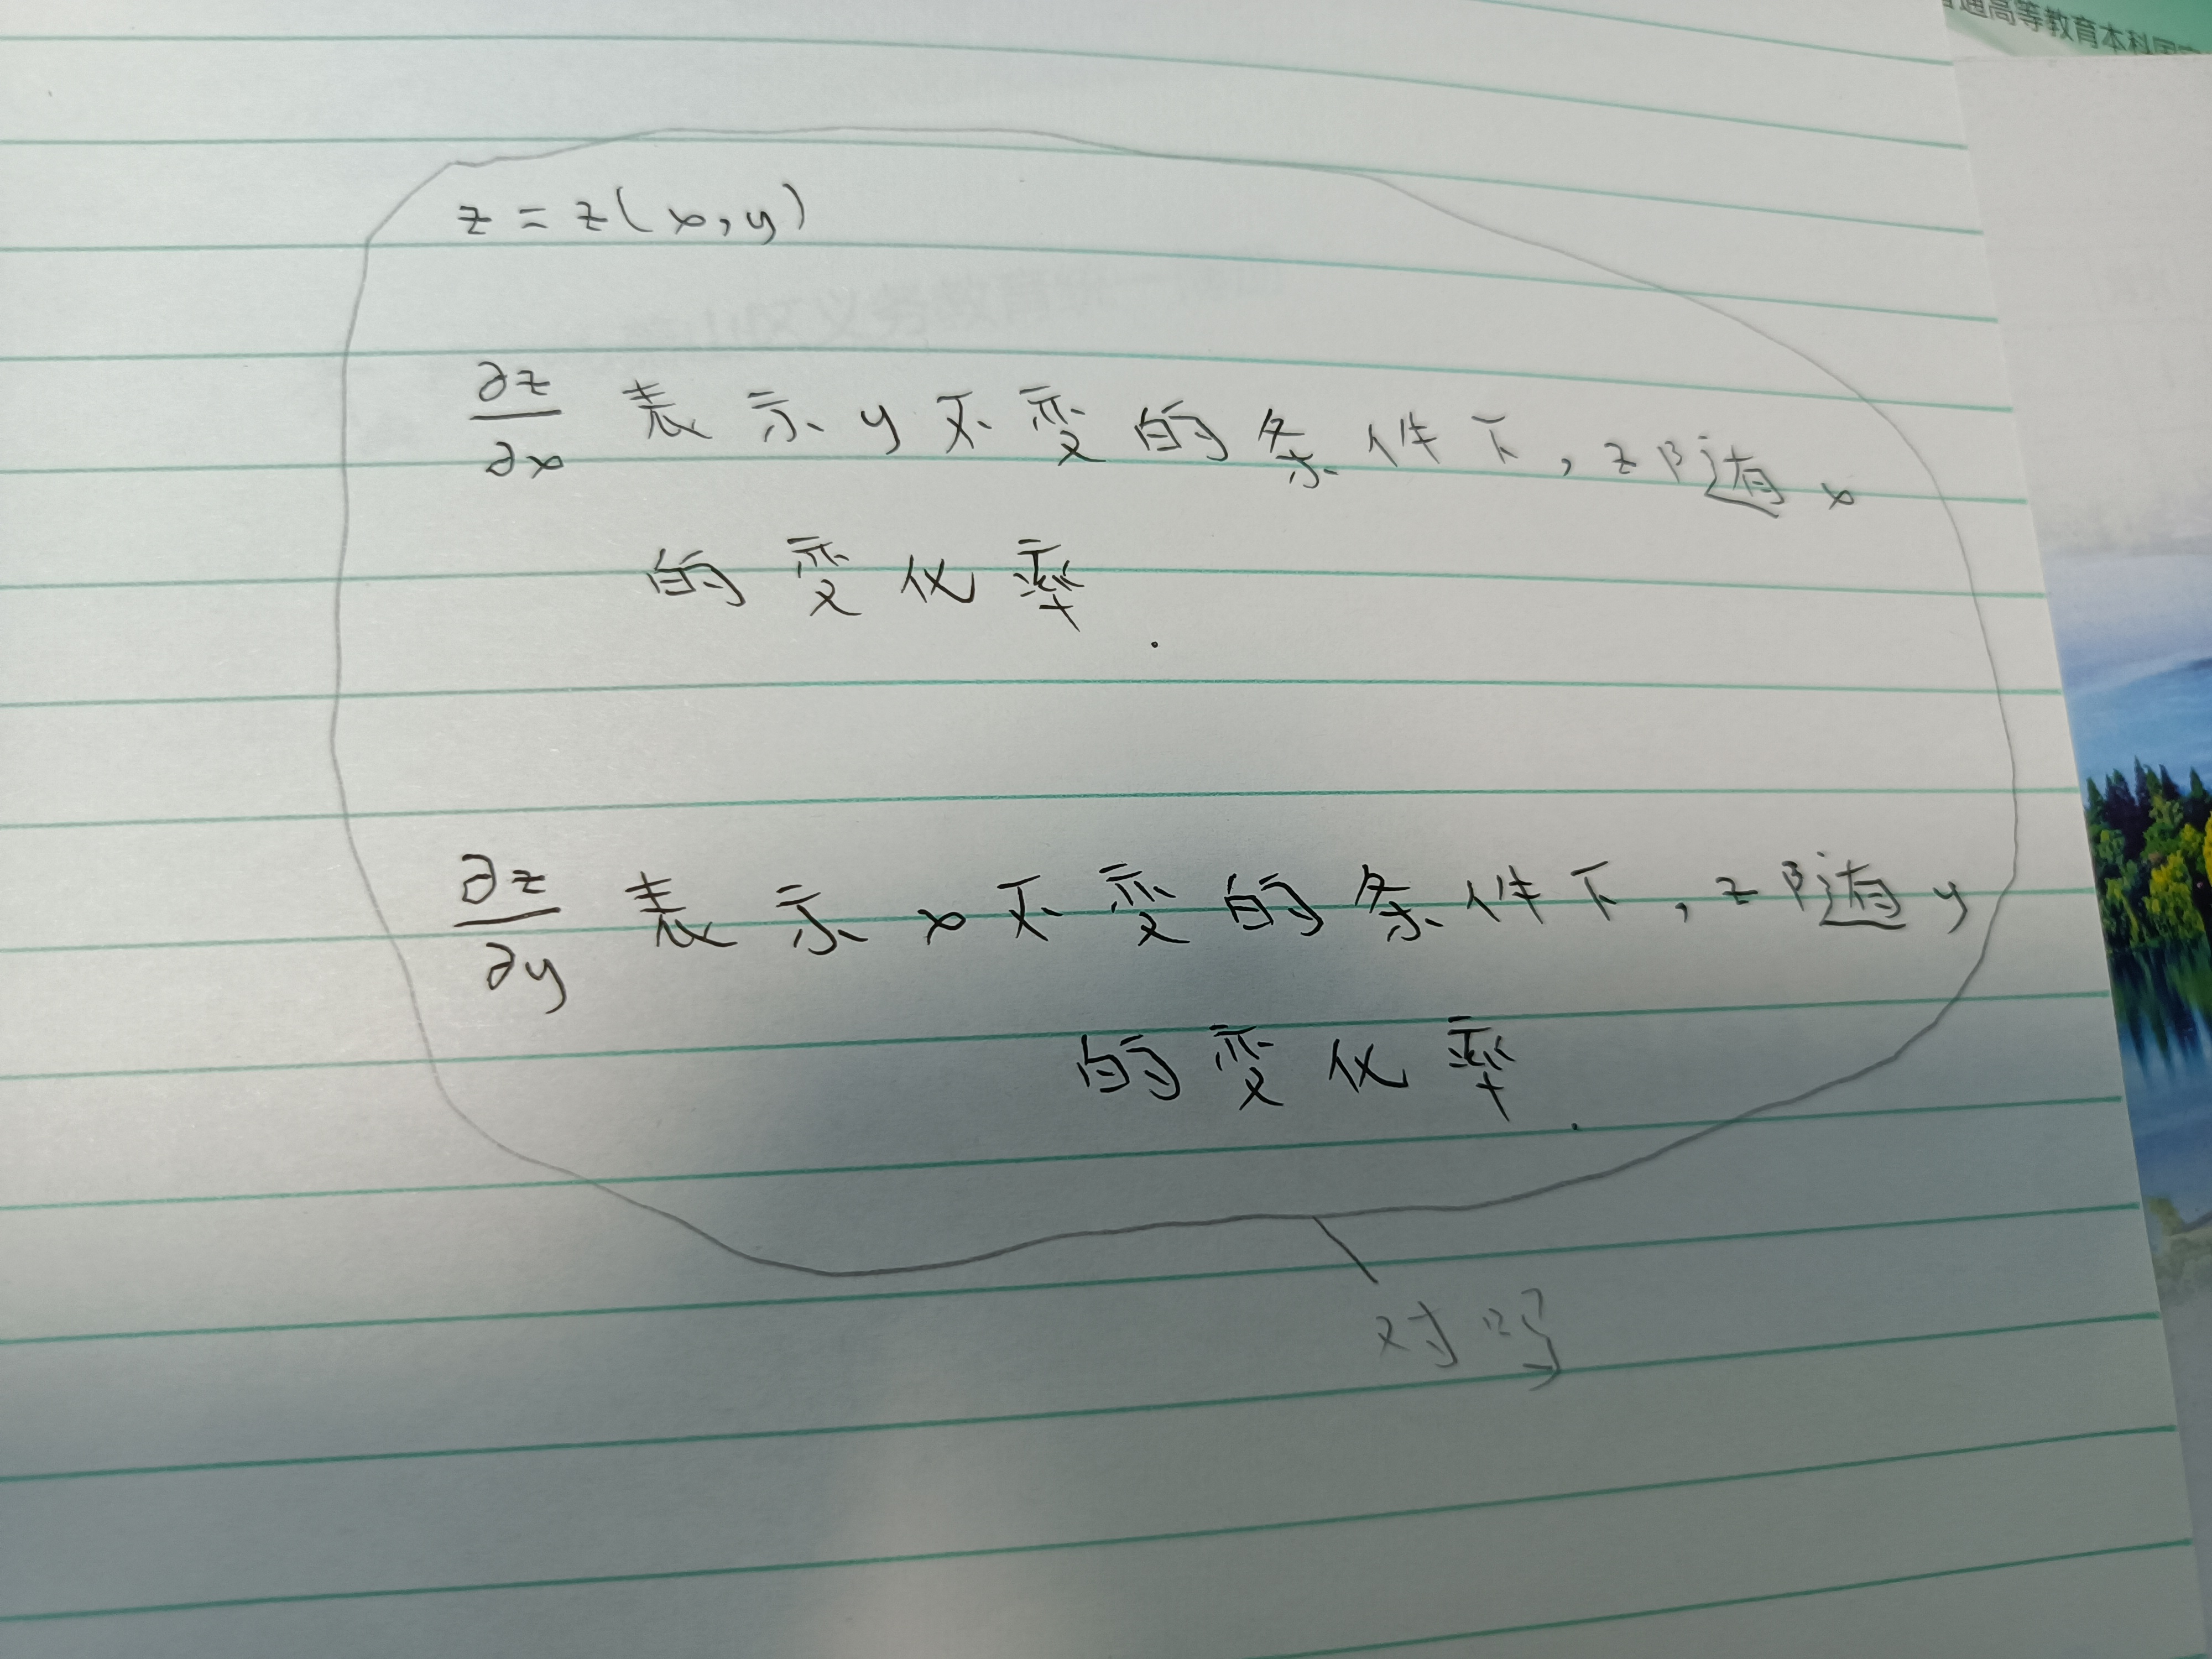 普通高等教育本科国
z = z(x,y)
∂z/∂x 表示y不变的条件下,z随x
的变化率.
∂z/∂y 表示x不变的条件下,z随y
的变化率.
对吗